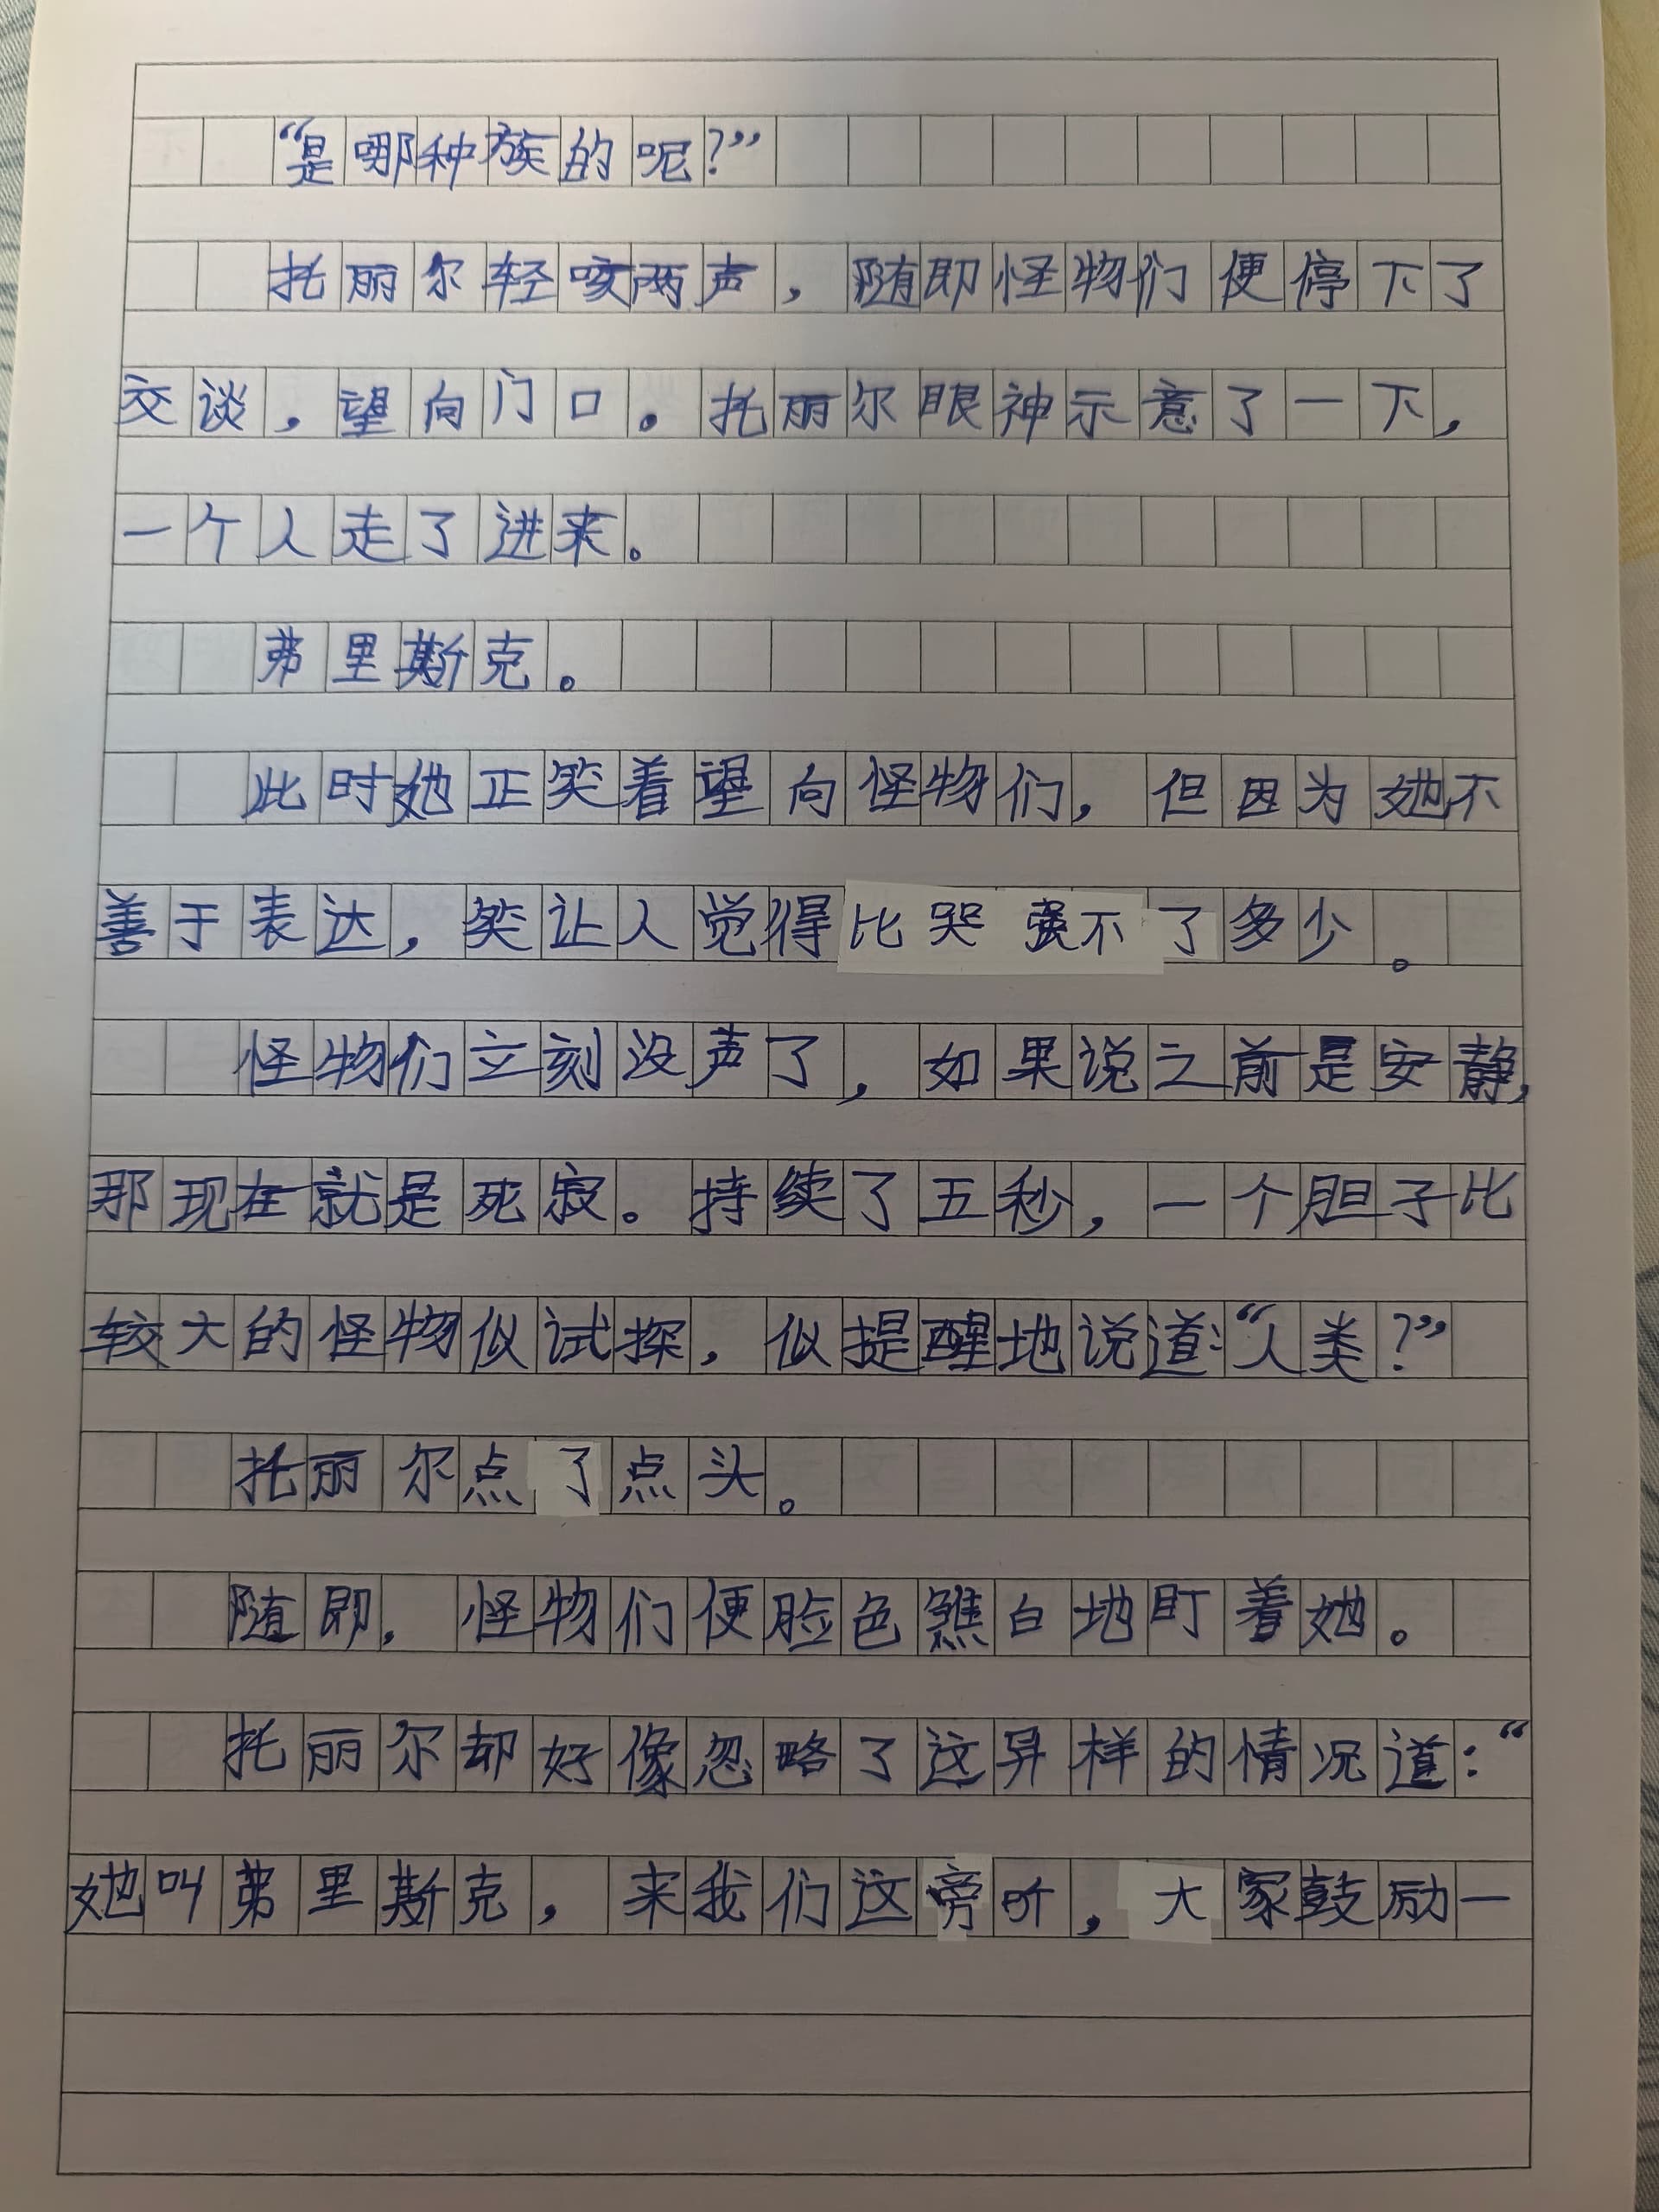 “是哪种族的呢？”
托丽尔轻咳两声，随即怪物们便停下了
交谈，望向门口。托丽尔眼神示意了一下，
一个人走了进来。
弗里斯克。
此时她正笑着望向怪物们，但因为她不
善于表达，笑让人觉得比哭强不了多少。
怪物们立刻没声了，如果说之前是安静，
那现在就是死寂。持续了五秒，一个胆子比
较大的怪物似试探，似提醒地说道：“人类？”
托丽尔点了点头。
随即，怪物们便脸色白地盯着她。
托丽尔却好像忽略了这异样的情况道：“
她叫弗里斯克，来我们这旁听，大家鼓励一